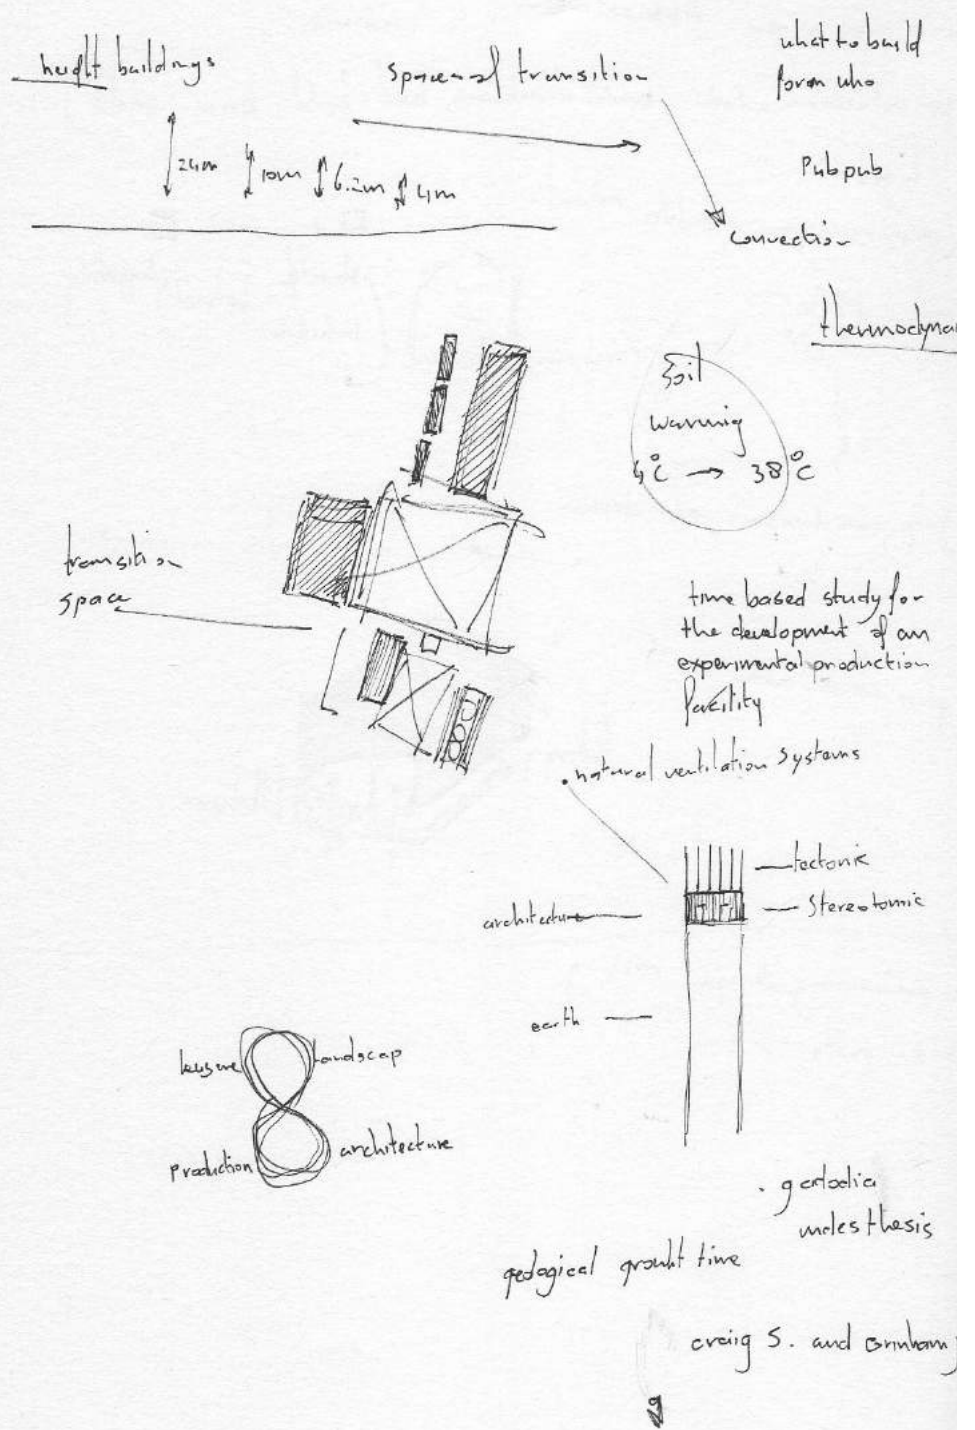 height buildings
spaces of transition
what to build
for who
24m
10m
6.2m
4m
Pubpub
convection
thermodynam
Soil
warming
4°C → 38°C
transition
space
time based study for
the development of an
experimental production
facility
natural ventilation systems
tectonic
Stereotomic
architecture
earth
leisure
landscap
production
architecture
geological
time
craig S. and